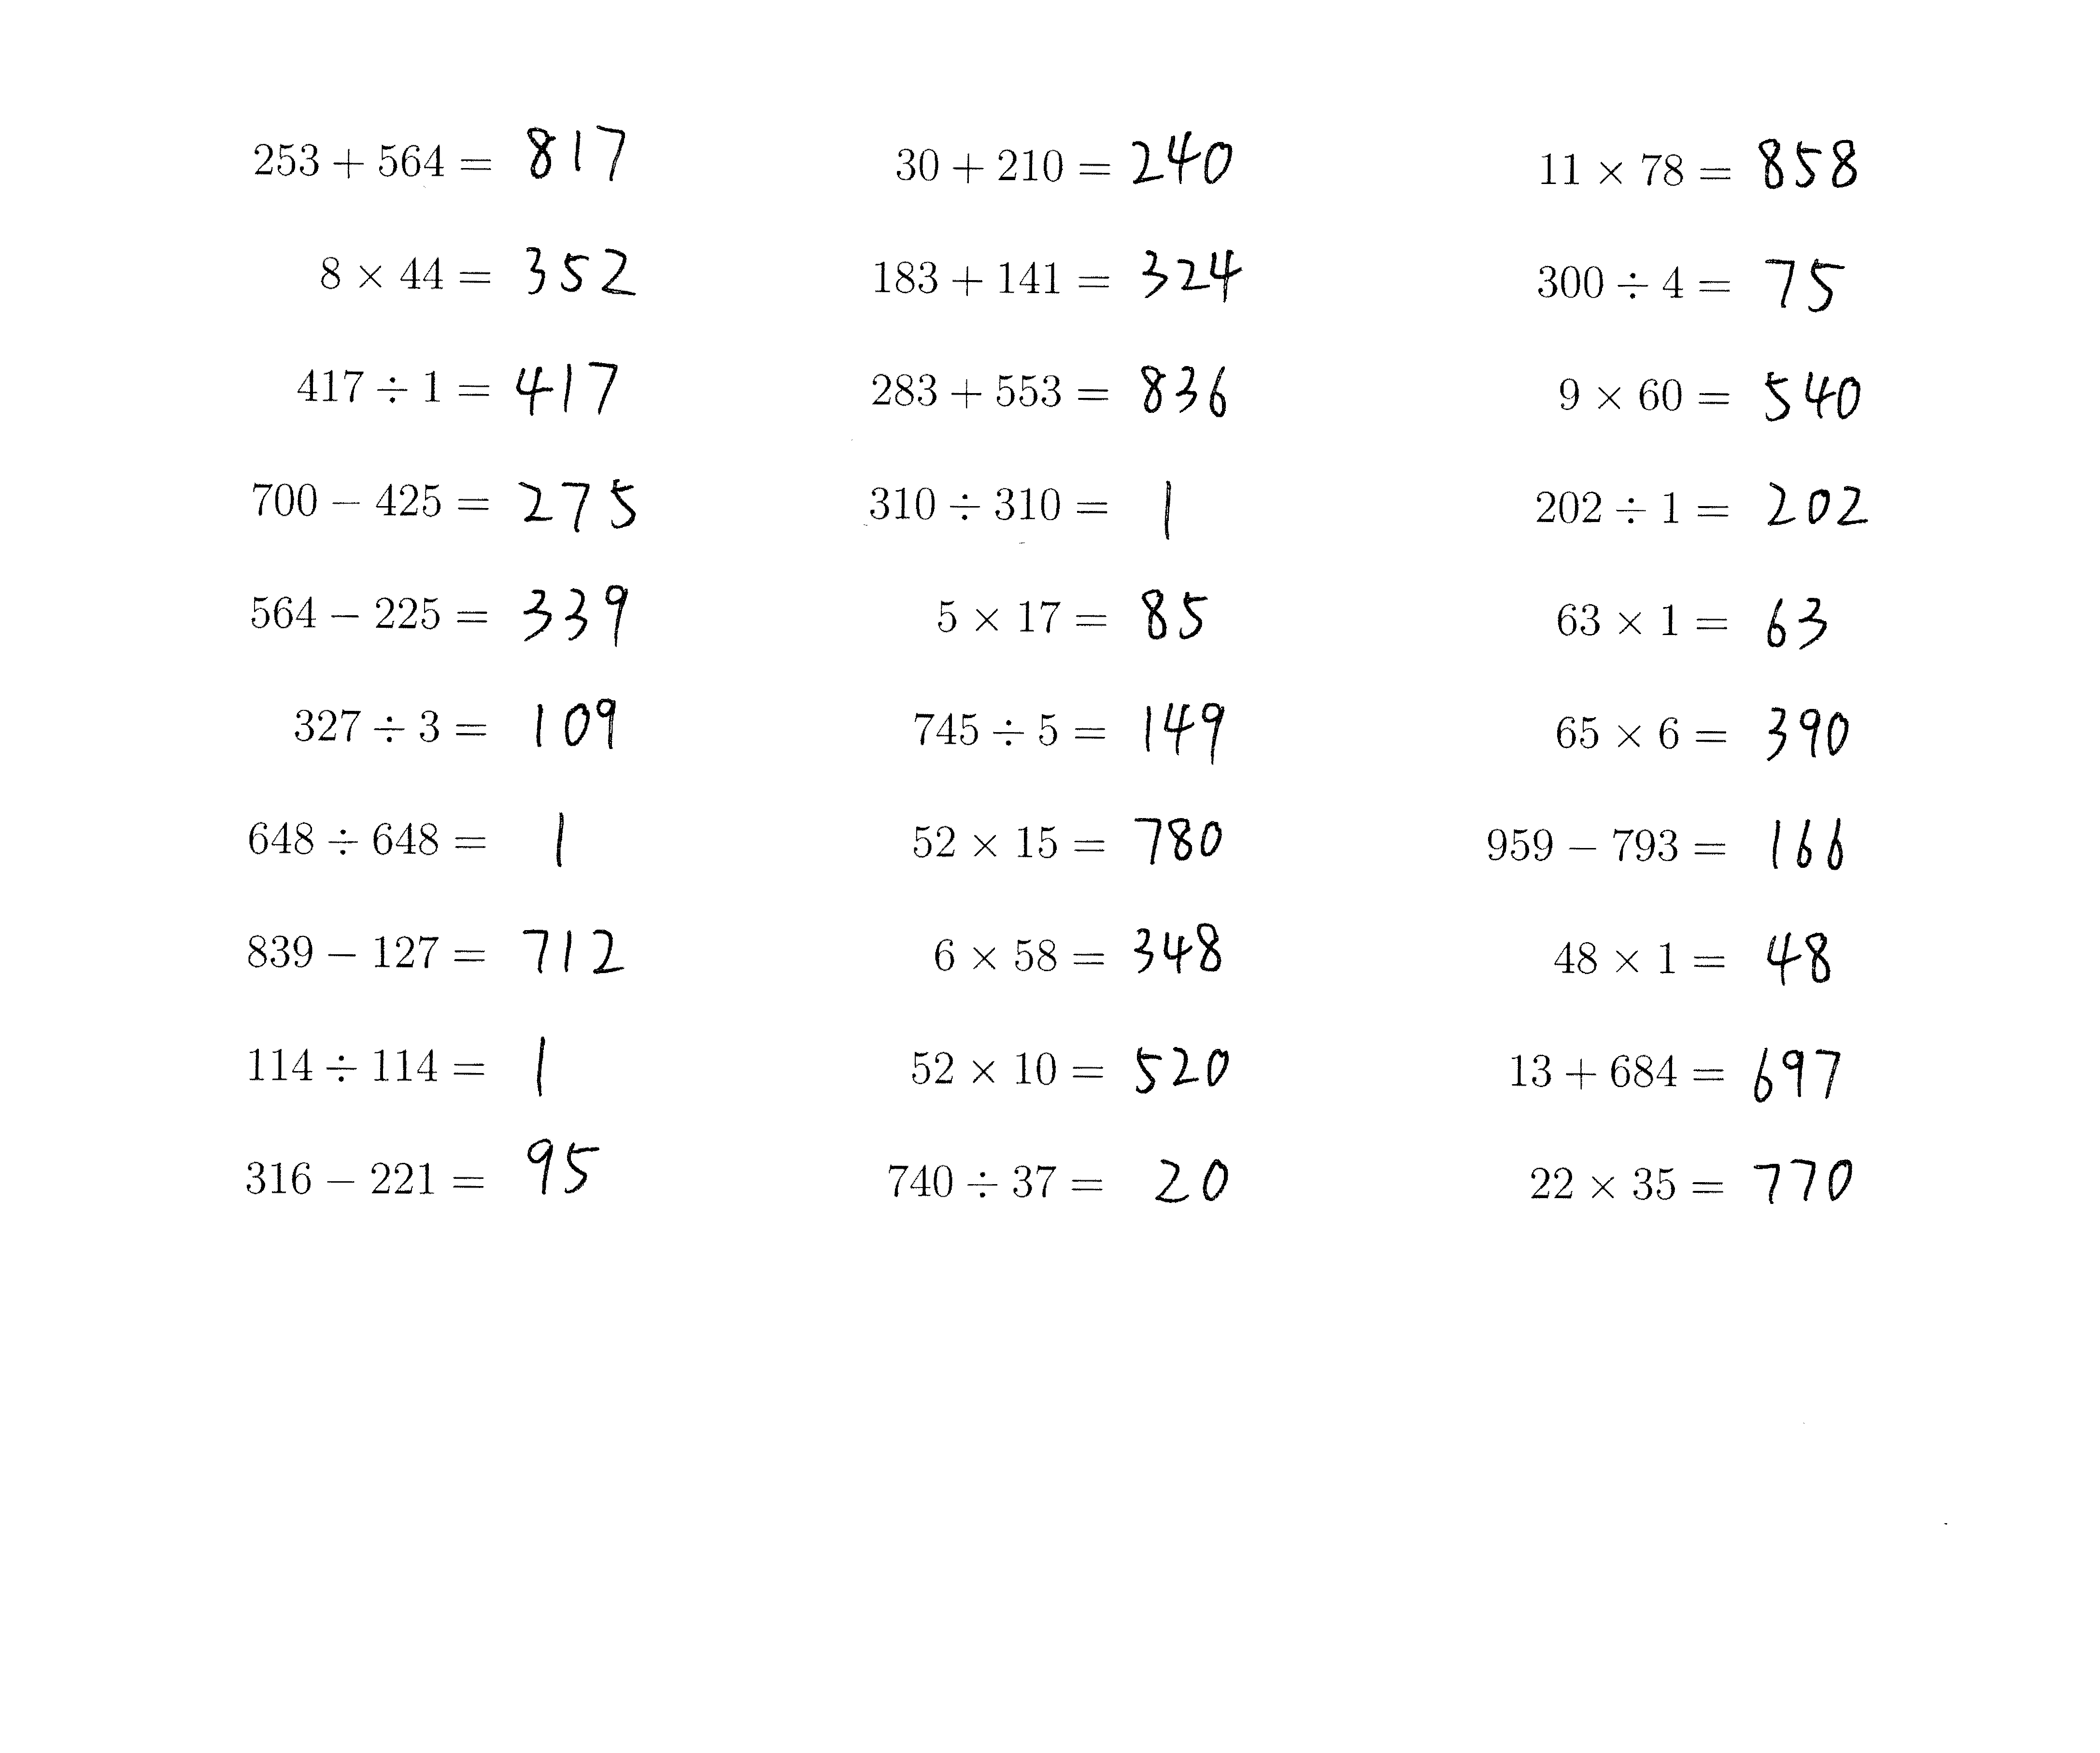 253 + 564 = 817
8 × 44 = 352
417 ÷ 1 = 417
700 − 425 = 275
564 − 225 = 339
327 ÷ 3 = 109
648 ÷ 648 = 1
839 − 127 = 712
114 ÷ 114 = 1
316 − 221 = 95
30 + 210 = 240
183 + 141 = 324
283 + 553 = 836
310 ÷ 310 = 1
5 × 17 = 85
745 ÷ 5 = 149
52 × 15 = 780
6 × 58 = 348
52 × 10 = 520
740 ÷ 37 = 20
11 × 78 = 858
300 ÷ 4 = 75
9 × 60 = 540
202 ÷ 1 = 202
63 × 1 = 63
65 × 6 = 390
959 − 793 = 166
48 × 1 = 48
13 + 684 = 697
22 × 35 = 770